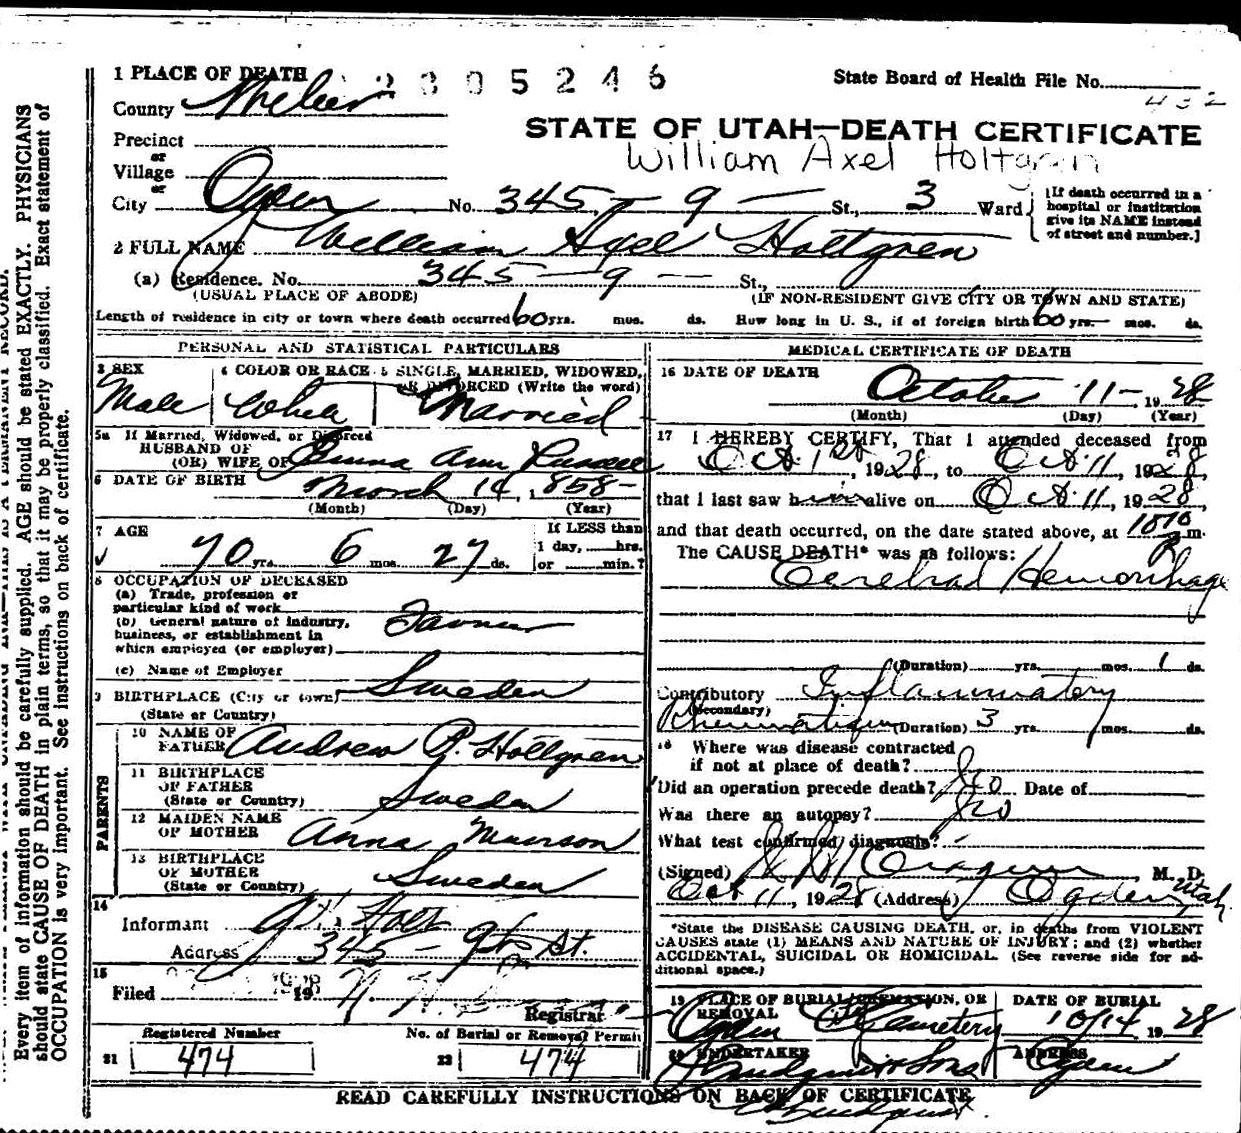 1 PLACE OF DEATH 2305246 State Board of Health File No.
432
County Weber
STATE OF UTAH—DEATH CERTIFICATE
Precinct
William Axel Holtgren
or
Village
or
City Ogden No. 345 - 9 - St., 3 Ward
[If death occurred in a hospital or institution give its NAME instead of street and number.]
2 FULL NAME William Axel Holtgren
(a) Residence. No. 345 - 9 - St.,
(USUAL PLACE OF ABODE) (IF NON-RESIDENT GIVE CITY OR TOWN AND STATE)
Length of residence in city or town where death occurred 60 yrs. mos. ds. How long in U. S., if of foreign birth 60 yrs. mos. ds.
PERSONAL AND STATISTICAL PARTICULARS
3 SEX 4 COLOR OR RACE 5 SINGLE, MARRIED, WIDOWED, OR DIVORCED (Write the word)
Male White Married
5a If Married, Widowed, or Divorced
HUSBAND OF
(OR) WIFE OF Emma Ann Russell
6 DATE OF BIRTH March 14, 1858
(Month) (Day) (Year)
7 AGE If LESS than
70 yrs. 6 mos. 27 ds. 1 day, hrs.
or min.?
8 OCCUPATION OF DECEASED
(a) Trade, profession or
particular kind of work
(b) General nature of industry,
business, or establishment in
which employed (or employer) Farmer
(c) Name of Employer
9 BIRTHPLACE (City or town) Sweden
(State or Country)
PARENTS
10 NAME OF
FATHER Andrew P. Holtgren
11 BIRTHPLACE
OF FATHER
(State or Country) Sweden
12 MAIDEN NAME
OF MOTHER Anna Munson
13 BIRTHPLACE
OF MOTHER
(State or Country) Sweden
14
Informant
Address 345 - 9th St.
15
Filed 1928
Registrar
Registered Number No. of Burial or Removal Permit
21 474 22 474
MEDICAL CERTIFICATE OF DEATH
16 DATE OF DEATH
October 11 - 1928
(Month) (Day) (Year)
17 I HEREBY CERTIFY, That I attended deceased from
Oct. 1st, 1928, to Oct. 11, 1928,
that I last saw him alive on Oct. 11, 1928,
and that death occurred, on the date stated above, at 1010 P m.
The CAUSE DEATH* was as follows:
Cerebral Hemorrhage
(Duration) yrs. mos. 1 ds.
Contributory Inflammatory
(Secondary)
Rheumatism (Duration) 3 yrs. mos. ds.
18 Where was disease contracted
if not at place of death?
Did an operation precede death? No Date of
Was there an autopsy? No
What test confirmed diagnosis?
(Signed) M. D.
Oct 11, 1928 (Address) Ogden, Utah
*State the DISEASE CAUSING DEATH, or, in deaths from VIOLENT
CAUSES state (1) MEANS AND NATURE OF INJURY; and (2) whether
ACCIDENTAL, SUICIDAL OR HOMICIDAL. (See reverse side for ad-
ditional space.)
19 PLACE OF BURIAL, CREMATION, OR REMOVAL DATE OF BURIAL
Ogden Cemetery 10/14 1928
20 UNDERTAKER ADDRESS
& Sons Ogden
READ CAREFULLY INSTRUCTIONS ON BACK OF CERTIFICATE
Every item of information should be carefully supplied. AGE should be stated EXACTLY. PHYSICIANS
should state CAUSE OF DEATH in plain terms, so that it may be properly classified. Exact statement of
OCCUPATION is very important. See instructions on back of certificate.